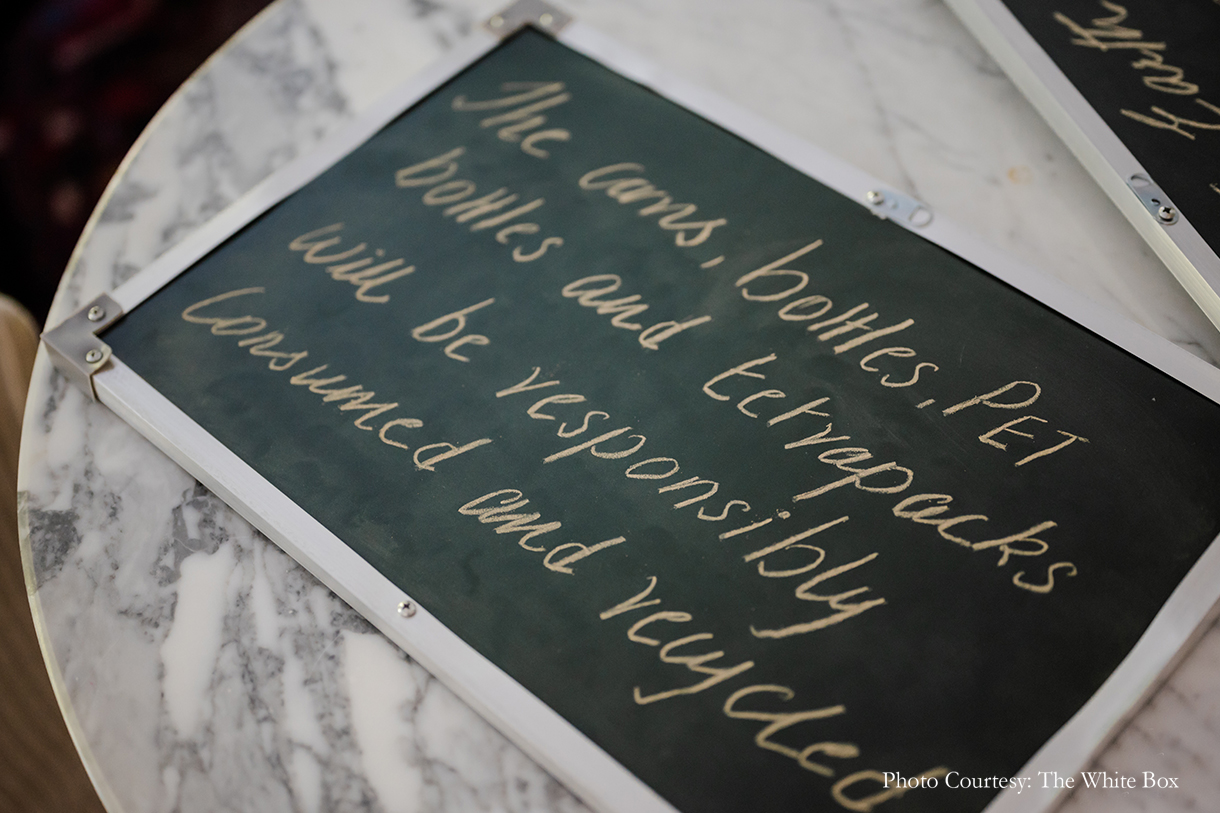 The cans, bottles, PET
bottles and tetrapacks
will be responsibly
Consumed and recycled
Photo Courtesy: The White Box